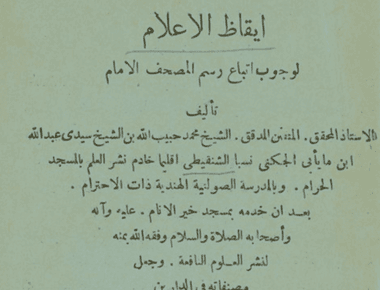 ايقاظ الاعلام
لوجوب اتباع رسم المصحف الامام
تأليف
الاستاذ المحقق . المتفنن المدقق . الشيخ محمد حبيب الله بن الشيخ سيدى عبدالله
ابن مايأبى الجكنى نسبا الشنقيطى اقليما خادم نشر العلم بالمسجد
الحرام . وبالمدرسة الصولتية الهندية ذات الاحترام .
بعد ان خدمه بمسجد خير الانام . عليه وآله
وأصحابه الصلاة والسلام وفقه الله بمنه
لنشر العلوم النافعة . وجعل
مصنفاته فى الدارين